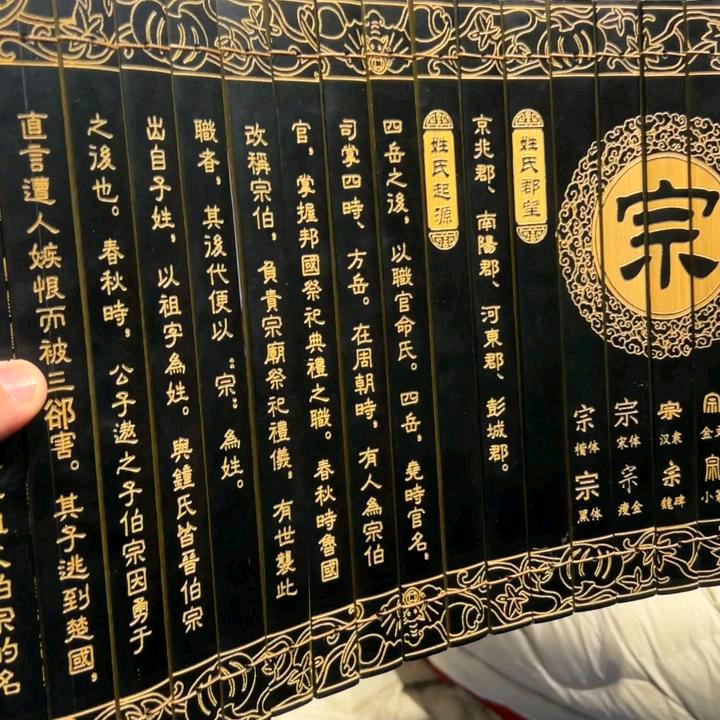 宗
金
小
宗
汉隶
宗
魏碑
宗
宋体
宗
瘦金
宗
楷体
宗
黑体
姓氏郡望
京兆郡、南陽郡、河東郡、彭城郡。
姓氏起源
四岳之後，以職官命氏。四岳，堯時官名，
司掌四時、方岳。在周朝時，有人為宗伯
官，掌握邦國祭祀典禮之職。春秋時魯國
改稱宗伯，負責宗廟祭祀禮儀，有世襲此
職者，其後代便以“宗”為姓。
出自子姓，以祖字為姓。與鍾氏皆晉伯宗
之後也。春秋時，公子遨之子伯宗因勇于
直言遭人嫉恨而被三郤害。其子逃到楚國，
伯宗的名